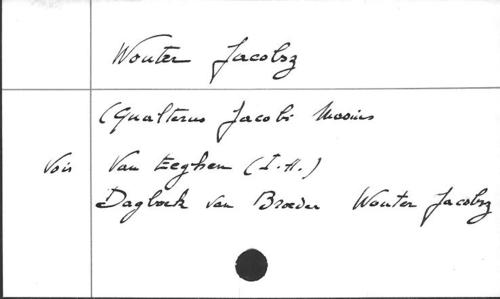 Wouter Jacobsz
(Gualterus Jacobi Masius
Voir Van Eeghen (I.H.)
Dagboek van Broeder Wouter Jacobsz